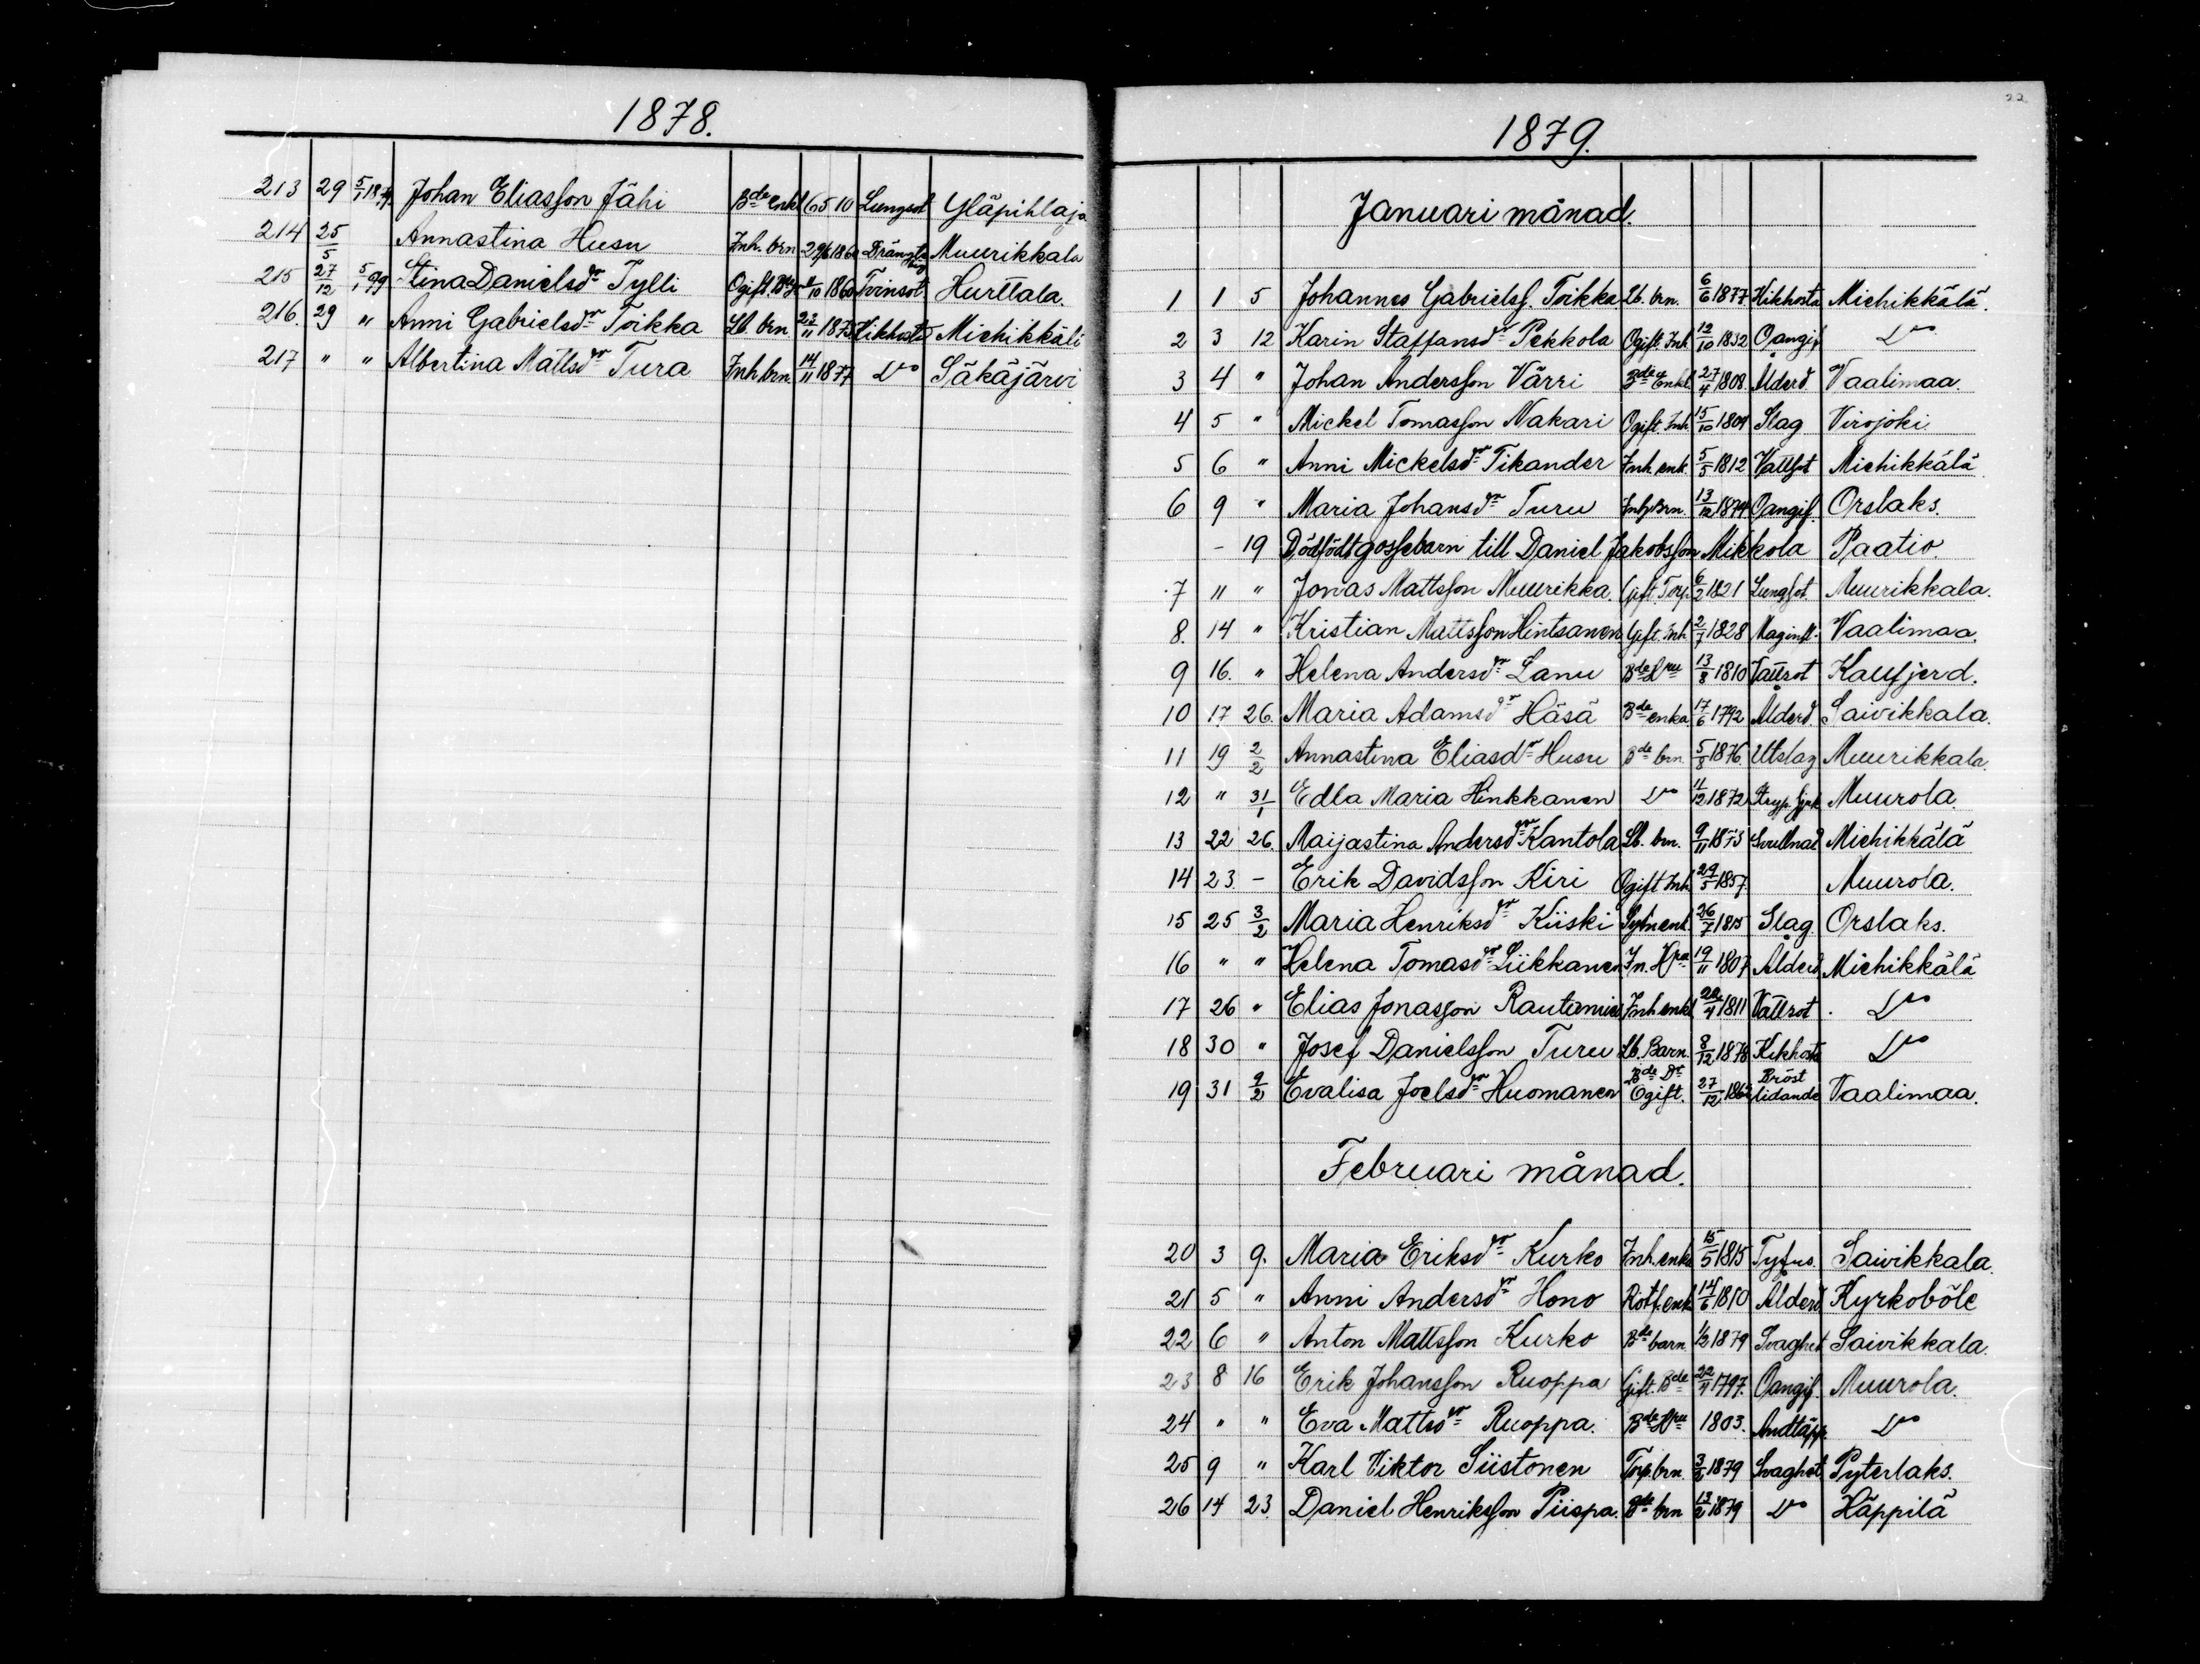 1878.
213 29 5/1 1879. Johan Eliasson Jähi Bde enkl 65 10 Lungsot Yläpihlaja
214 25/5 Annastina Husu Inh. brn 29/6 1860 Muurikkala
215 27/12 5/1 79 Stina Danielsdr Tylli Ogift. 1860 Tvinsot Hurttala.
216. 29 " Anni Gabrielsdr Toikka Lb. brn 23/11 1875 Kikhosta Michikkäli
217 " " Albertina Mattsdr Tura Inh. brn. 14/11 1877 Do Säkäjärvi
22
1879.
Januari månad.
1 1 5 Johannes Gabrielss. Toikka Lb. brn. 6/6 1877 Kikhosta Michikkälä.
2 3 12 Karin Staffansdr Pekkola Ogift Inh. 12/10 1832 Oangif Do
3 4 " Johan Andersson Värri Bde Enkl. 27/4 1808. Ålderd. Vaalimaa.
4 5 " Mickel Tomasson Nakari Ogift. Inh. 15/10 1804 Slag Virojoki
5 6 " Anni Mickelsdr Tikander Inh. enk. 5/5 1812 Vattsot Michikkälä
6 9 " Maria Johansdr Turu Inh. Brn. 13/12 1874 Oangif. Orslaks.
- 19 Dödfödt gossebarn till Daniel Jakobsson Mikkola Paatio
7 " " Jonas Mattsson Muurikka. Gift. Torp. 6/2 1821 Lungsot. Muurikkala.
8. 14 " Kristian Mattsson Hintsanen Gift. Inh. 2/7 1828 Maginfl. Vaalimaa.
9 16. " Helena Andersdr Lanu Bde 13/8 1810 Vattsot Kausjerd.
10 17 26. Maria Adamsdr Häsä Bde enka 17/6 1792 Ålderd Saivikkala.
11 19 2/2 Annastina Eliasdr Husu Bde brn. 5/8 1876. Utslag Muurikkala.
12 " 31/1 Edla Maria Hinkkanen Do 11/12 1872 Stryp. sjuk Muurola.
13 22 26. Maijastina Andersdr Kantola Lb. brn. 9/11 1873 Svullnad Michikkälä
14 23. - Erik Davidsson Kiri Ogift Inh. 29/5 1857. Muurola.
15 25 3/2 Maria Henriksdr Kiiski Sytn enk. 26/7 1815 Slag Orslaks.
16 " " Helena Tomasdr Liikkanen In. Hpa 19/11 1807 Ålderd Michikkälä
17 26 " Elias Jonasson Rautamies Inh enkl 22/4 1811 Vattsot. Do
18 30 " Josef Danielsson Turu Lb. Barn. 8/12 1878 Kikhosta Do
19 31 9/2 Evalisa Joelsdr Huomanen Bde Dr Ogift. 27/12 1862 Bröst lidande Vaalimaa.
Februari månad.
20 3 9. Maria Eriksdr Kurko Inh. enka 15/5 1815 Tyfus. Saivikkala.
21 5 " Anni Andersdr Hono Rotf. enk 14/6 1810 Ålderd Kyrkoböle
22 6 " Anton Mattsson Kurko Bde barn 1/2 1879 Svaghet Saivikkala.
23 8 16 Erik Johansson Ruoppa Gift. Bde 22/4 1797. Oangif. Muurola.
24 " " Eva Mattsdr Ruoppa. Bde Hru 1803. Andtäpp. Do
25 9 " Karl Viktor Siistonen Torp. brn. 3/2 1879 Svaghet Pyterlaks.
26 14 23. Daniel Henriksson Piispa. Bde brn 13/2 1879 Do Häppilä